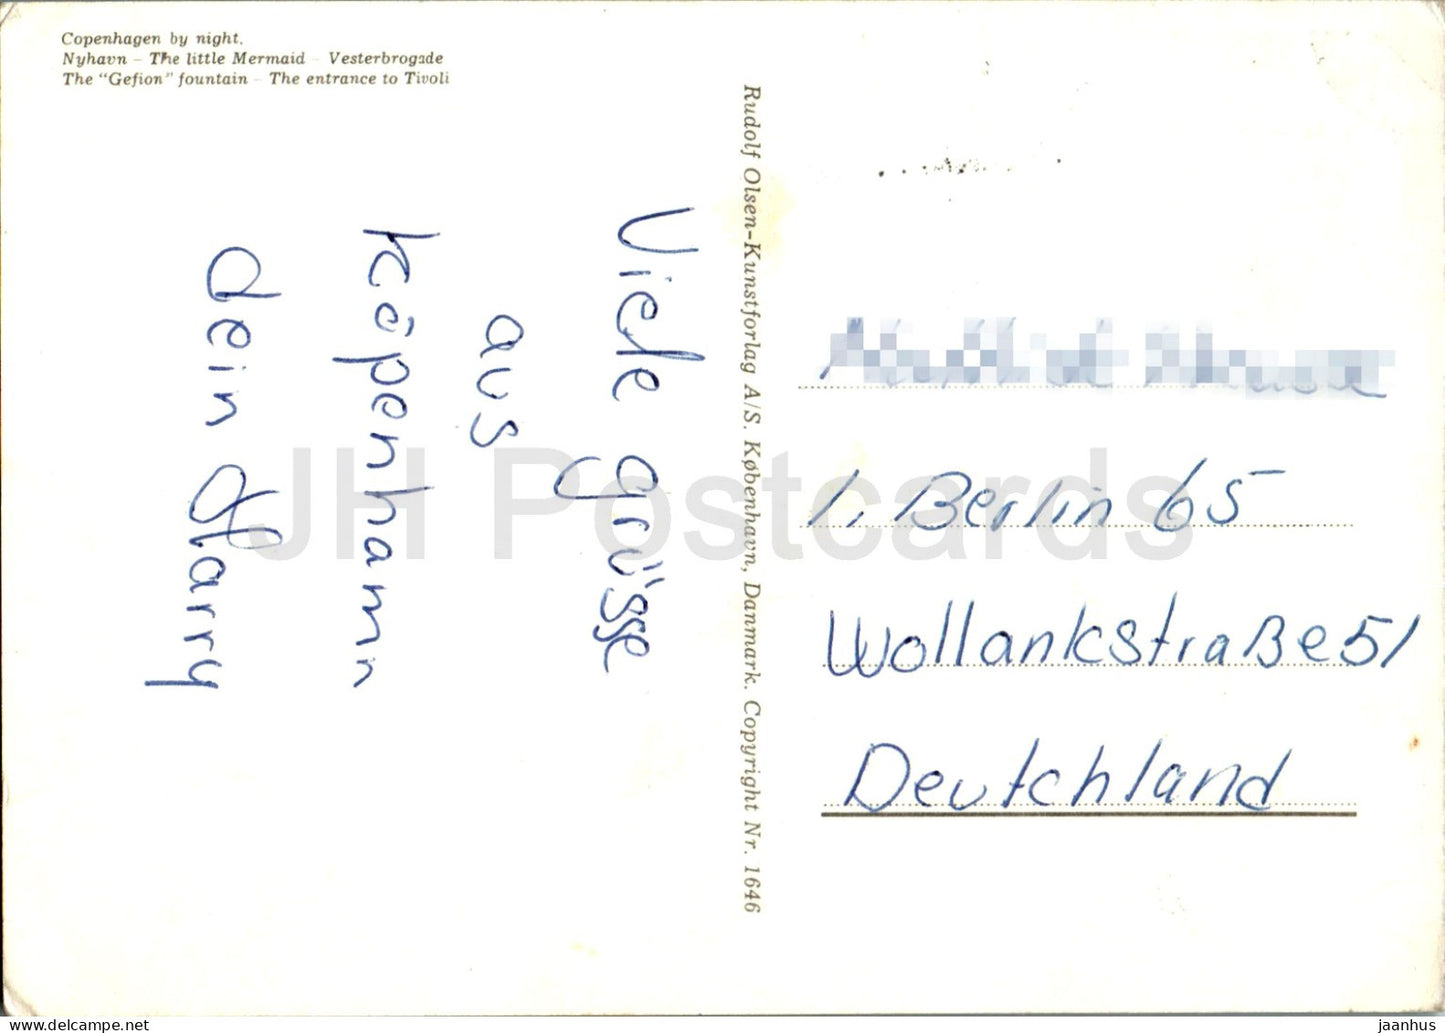 Copenhagen by night.
Nyhavn - The little Mermaid - Vesterbrogade
The "Gefion" fountain - The entrance to Tivoli
Viele grüsse
aus
Köpenhamn
dein Harry
Rudolf Olsen-Kunstforlag A/S. København, Danmark. Copyright Nr. 1646
1. Berlin 65
Wollankstraße 51
Deutchland
JH Postcards
jaanhus